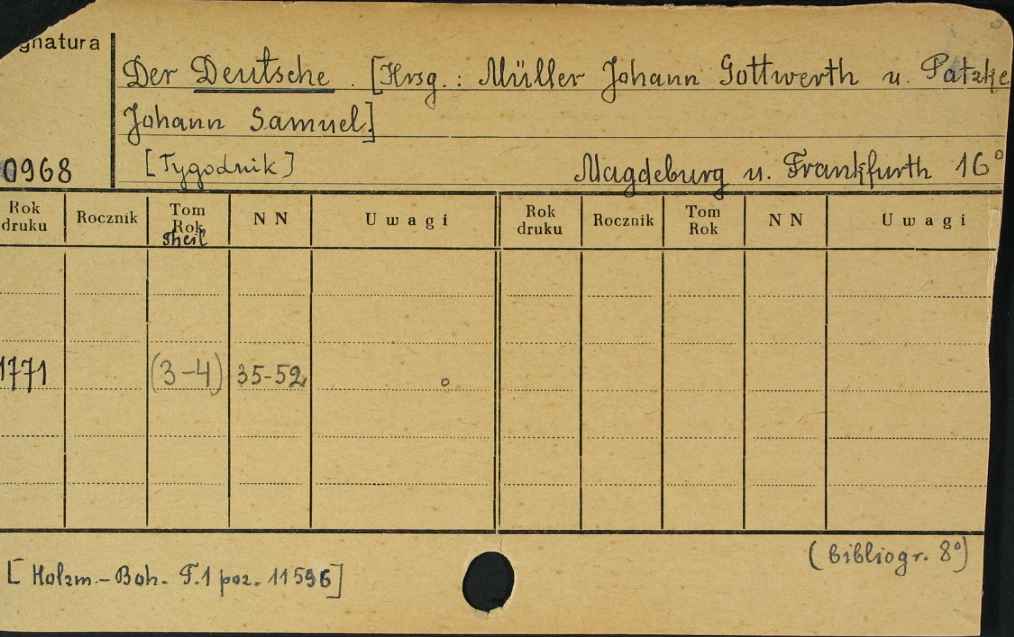 gnatura
Der Deutsche. [Hrsg.: Müller Johann Gottwerth u. Patzke
Johann Samuel]
0968 [Tygodnik] Magdeburg u. Frankfurth 16°
Rok druku Rocznik Tom Rok Theil N N Uwagi Rok druku Rocznik Tom Rok N N Uwagi
1771 (3-4) 35-52
(bibliogr. 8°)
[Holzm.-Boh. T.1 poz. 11596]